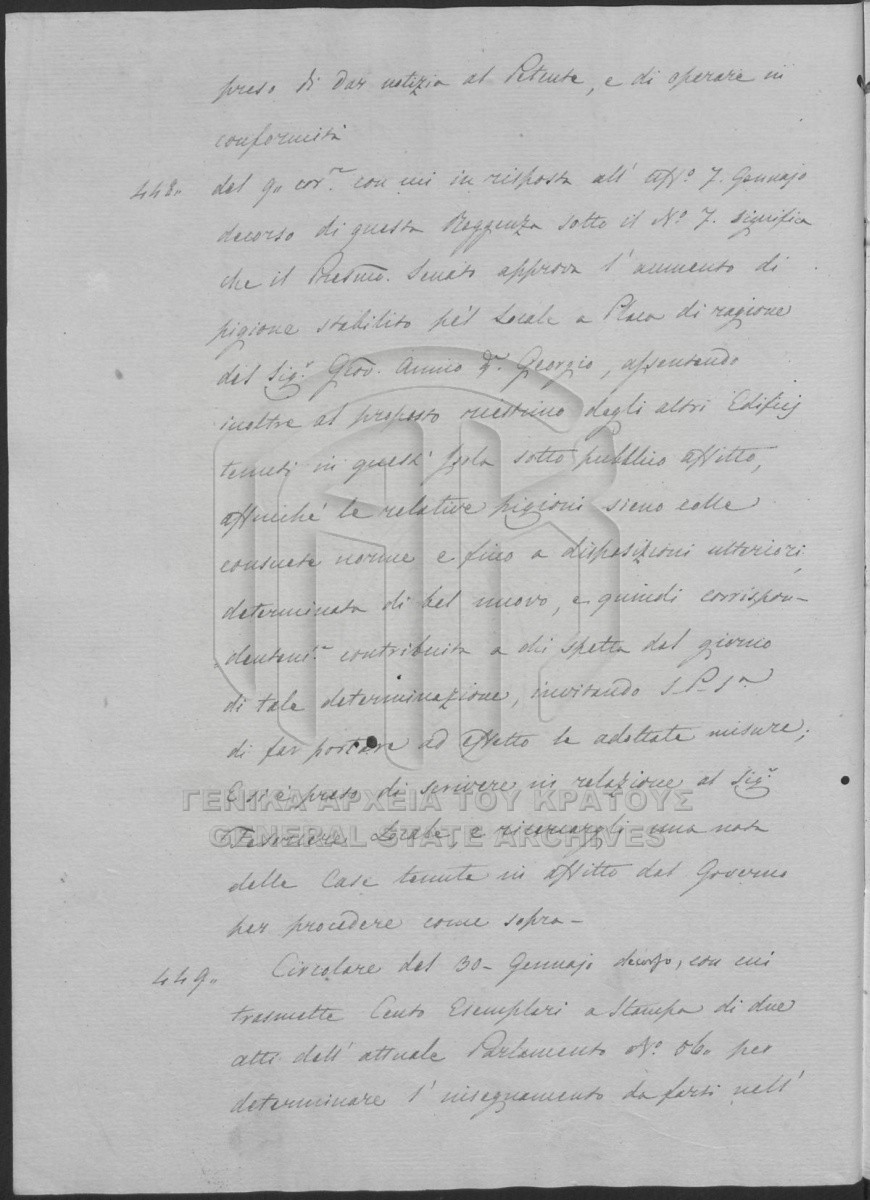 preso di dar notizia al Petente, e di operare in
conformità
448. del 9. cor.e con cui in risposta all' Off.o 7. Gennajo
decorso di questa Reggenza sotto il No. 7. significa
che il Prestmo. Senato approva l'aumento di
pigione stabilito pel Locale a Placa di ragione
del Sig.r Giov. Annino q.m Georgio, assentendo
inoltre al proposto riestimo degli altri Edificj
tenuti in quest' Isola sotto pubblico affitto,
affinché le relative pigioni sieno colle
consuete norme e fino a disposizioni ulteriori,
determinata di bel nuovo, e quindi corrispon-
dentem.e contribuita a chi spetta dal giorno
di tale determinazione, invitando S. P. S.a
di far portare ad effetto le adottate misure;
Ess'è preso di scrivere in relazione al Sig.r
Tesoriere Locale, e ricercargli una nota
delle Case tenute in affitto dal Governo
per procedere come sopra-
449. Circolare del 30- Gennajo decorso, con cui
trasmette Cento Esemplari a Stampa di due
atti dell' attuale Parlamento No. 56. per
determinare l'insegnamento da farsi nell'
ΓΕΝΙΚΑ ΑΡΧΕΙΑ ΤΟΥ ΚΡΑΤΟΥΣ
GENERAL STATE ARCHIVES